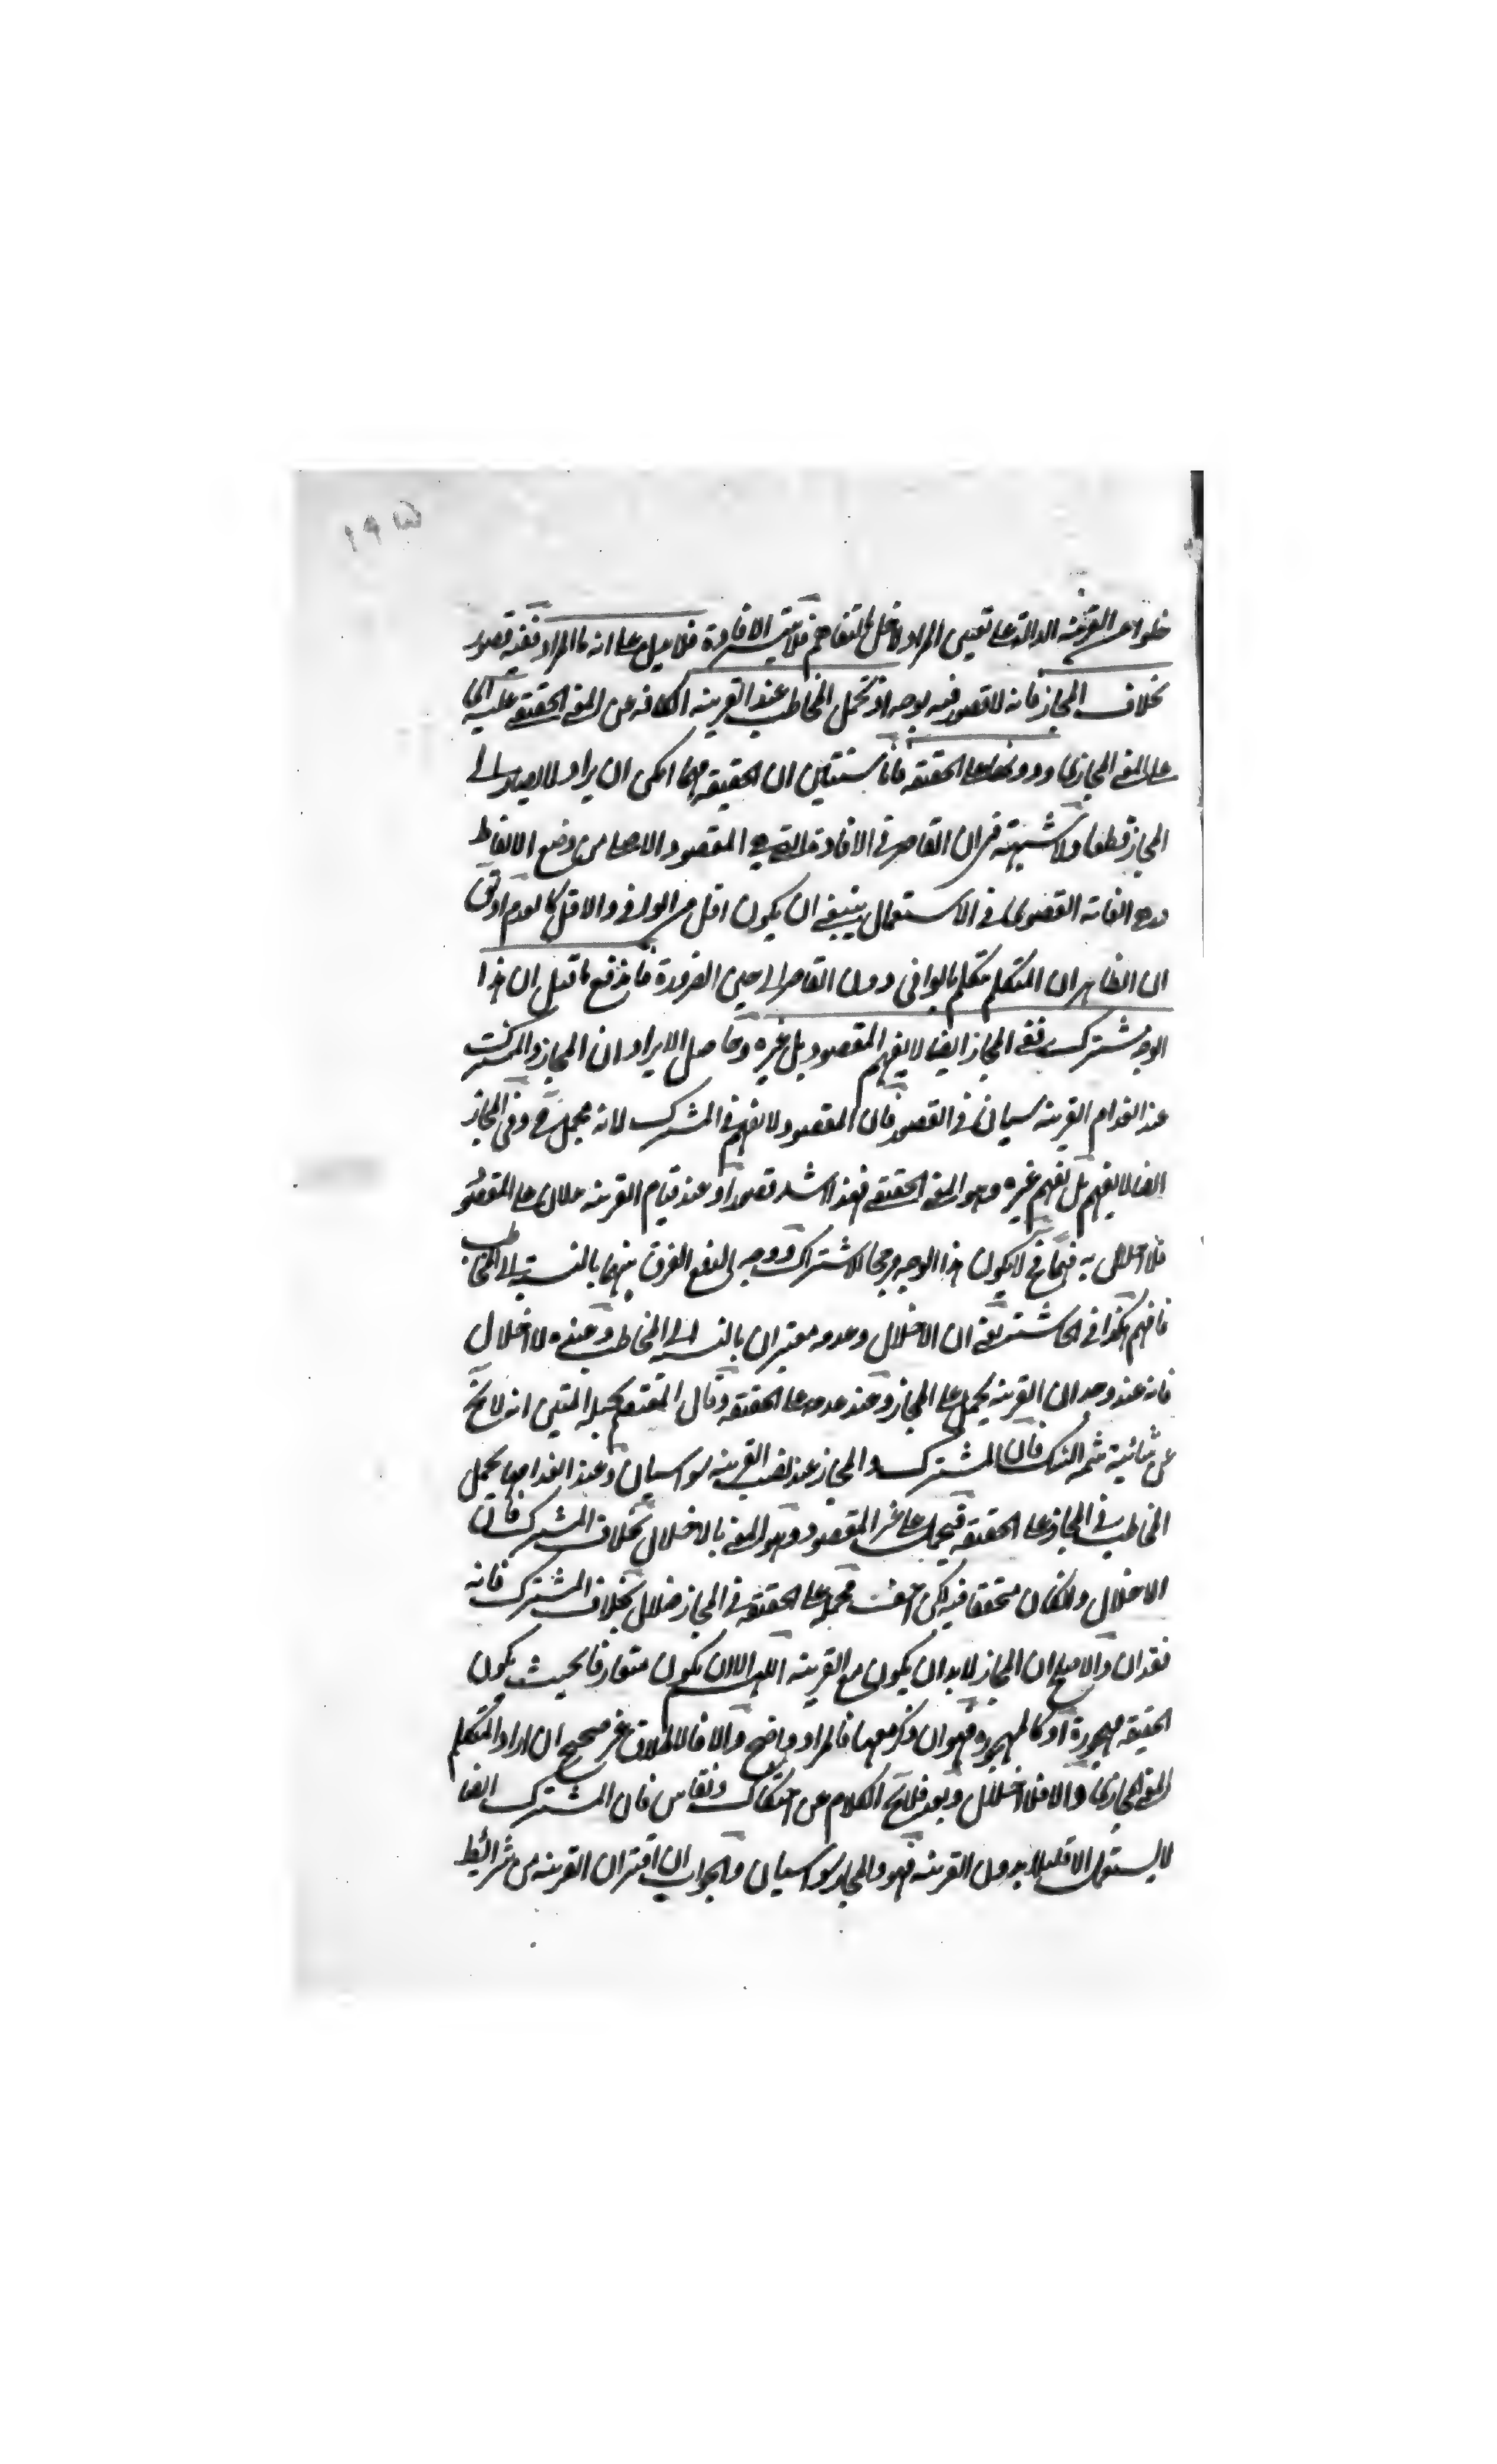 ١٩٥
خلوه عن القرينة الدالة على تعيين المراد لاخل التفاهم فلا يتم الافادة فلا يدل على انه ما المراد ففيه قصور
بخلاف المجاز فانه لا قصور فيه بوجه اذ يحمل المخاطب عند القرينة الكافة عن المعنى الحقيقي عليه اى
على المعنى المجازي ودونها على الحقيقة فانا مستيقن ان الحقيقة مهما امكن ان يراد لا يصار الى
المجاز قطعا ولا شبهة في ان القاصر في الافادة التي هي المقصود الاصلي من وضع الالفاظ
وهي الغاية القصوى في الاستعمال ينبغي ان يكون اقل من الوافي والاقل كالعدم او نقول
ان الظاهر ان المتكلم يتكلم بالوافي دون القاصر الى حين الضرورة فاندفع ما قيل ان هذا
الوجه مشترك ففي المجاز ايضا لا يفهم المقصود بل غيره وحاصل الايراد ان المجاز والمشترك
عند انعدام القرينة سيان في القصور فان المقصود لا يفهم في المشترك لانه مجمل ح وفي المجاز
ايضا لا يفهم بل يفهم غيره وهو المعنى الحقيقي فهذا اشد قصورا وعند قيام القرينة يدلان على المقصود
فلا اخلال به فيهما فح لا يكون هذا الوجه مرجحا للاشتراك ووجه الدفع الفرق بينهما بالنسبة الى المخاطب
فافهم هكذا في الحاشية يعني ان الاخلال وعدمه معتبران بالنسبة الى المخاطب وعنده لا اخلال
فانه عند وجدان القرينة يحمل على المجاز وعند عدمه على الحقيقة وقال المعتصم بحبله المتين انه لا يخ
عن شائبة شمة الشك فان المشترك والمجاز عند نصب القرينة سواسيان وعند انعدامها يحمل
المخاطب في المجاز على الحقيقة فيحمل على غير المقصود وهو المعني بالاخلال بخلاف المشترك فان
الاخلال وان كان متحققا فيه لكن اخف محمله على الحقيقة في المجاز ضلال بخلاف المشترك فانه
فقدان والاصح ان المجاز لا بد ان يكون مع القرينة اللهم الا ان يكون متعارفا بحيث يكون
الحقيقة مهجورة او كالمهجور فهو ان ذكر معها فالمراد واضح والا فالاطلاق غير صحيح ان اراد المتكلم
المعنى المجازي والا فلا اخلال وبعد فلا يخ الكلام عن احتكاك ونقاس فان المشترك ايضا
لا يستعمل الا قليلا بدون القرينة فهو والمجاز سواسيان والجواب ان اقتران القرينة من شرائط